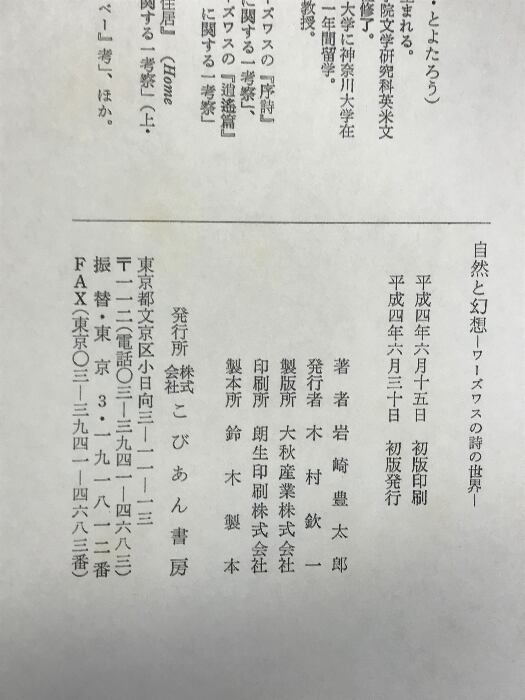 ・とよたろう）
まれる。
院文学研究科英米文
修了。
大学に神奈川大学在
一年間留学。
教授。
ーズワスの『序詩』
に関する一考察」、
ワスの『逍遙篇』
に関する一考察」
住居』（Home
関する一考察」（上・
ベー』考」、ほか。
自然と幻想―ワーズワスの詩の世界―
平成四年六月十五日　初版印刷
平成四年六月三十日　初版発行
著者　岩崎豊太郎
発行者　木村欽一
製版所　大秋産業株式会社
印刷所　朗生印刷株式会社
製本所　鈴木製本
発行所　株式会社こびあん書房
東京都文京区小日向三―一一―一三
〒一一二（電話〇三―三九四一―四六八三）
振替・東京　3・一九一八一二番
FAX（東京〇三―三九四一―四六八三番）